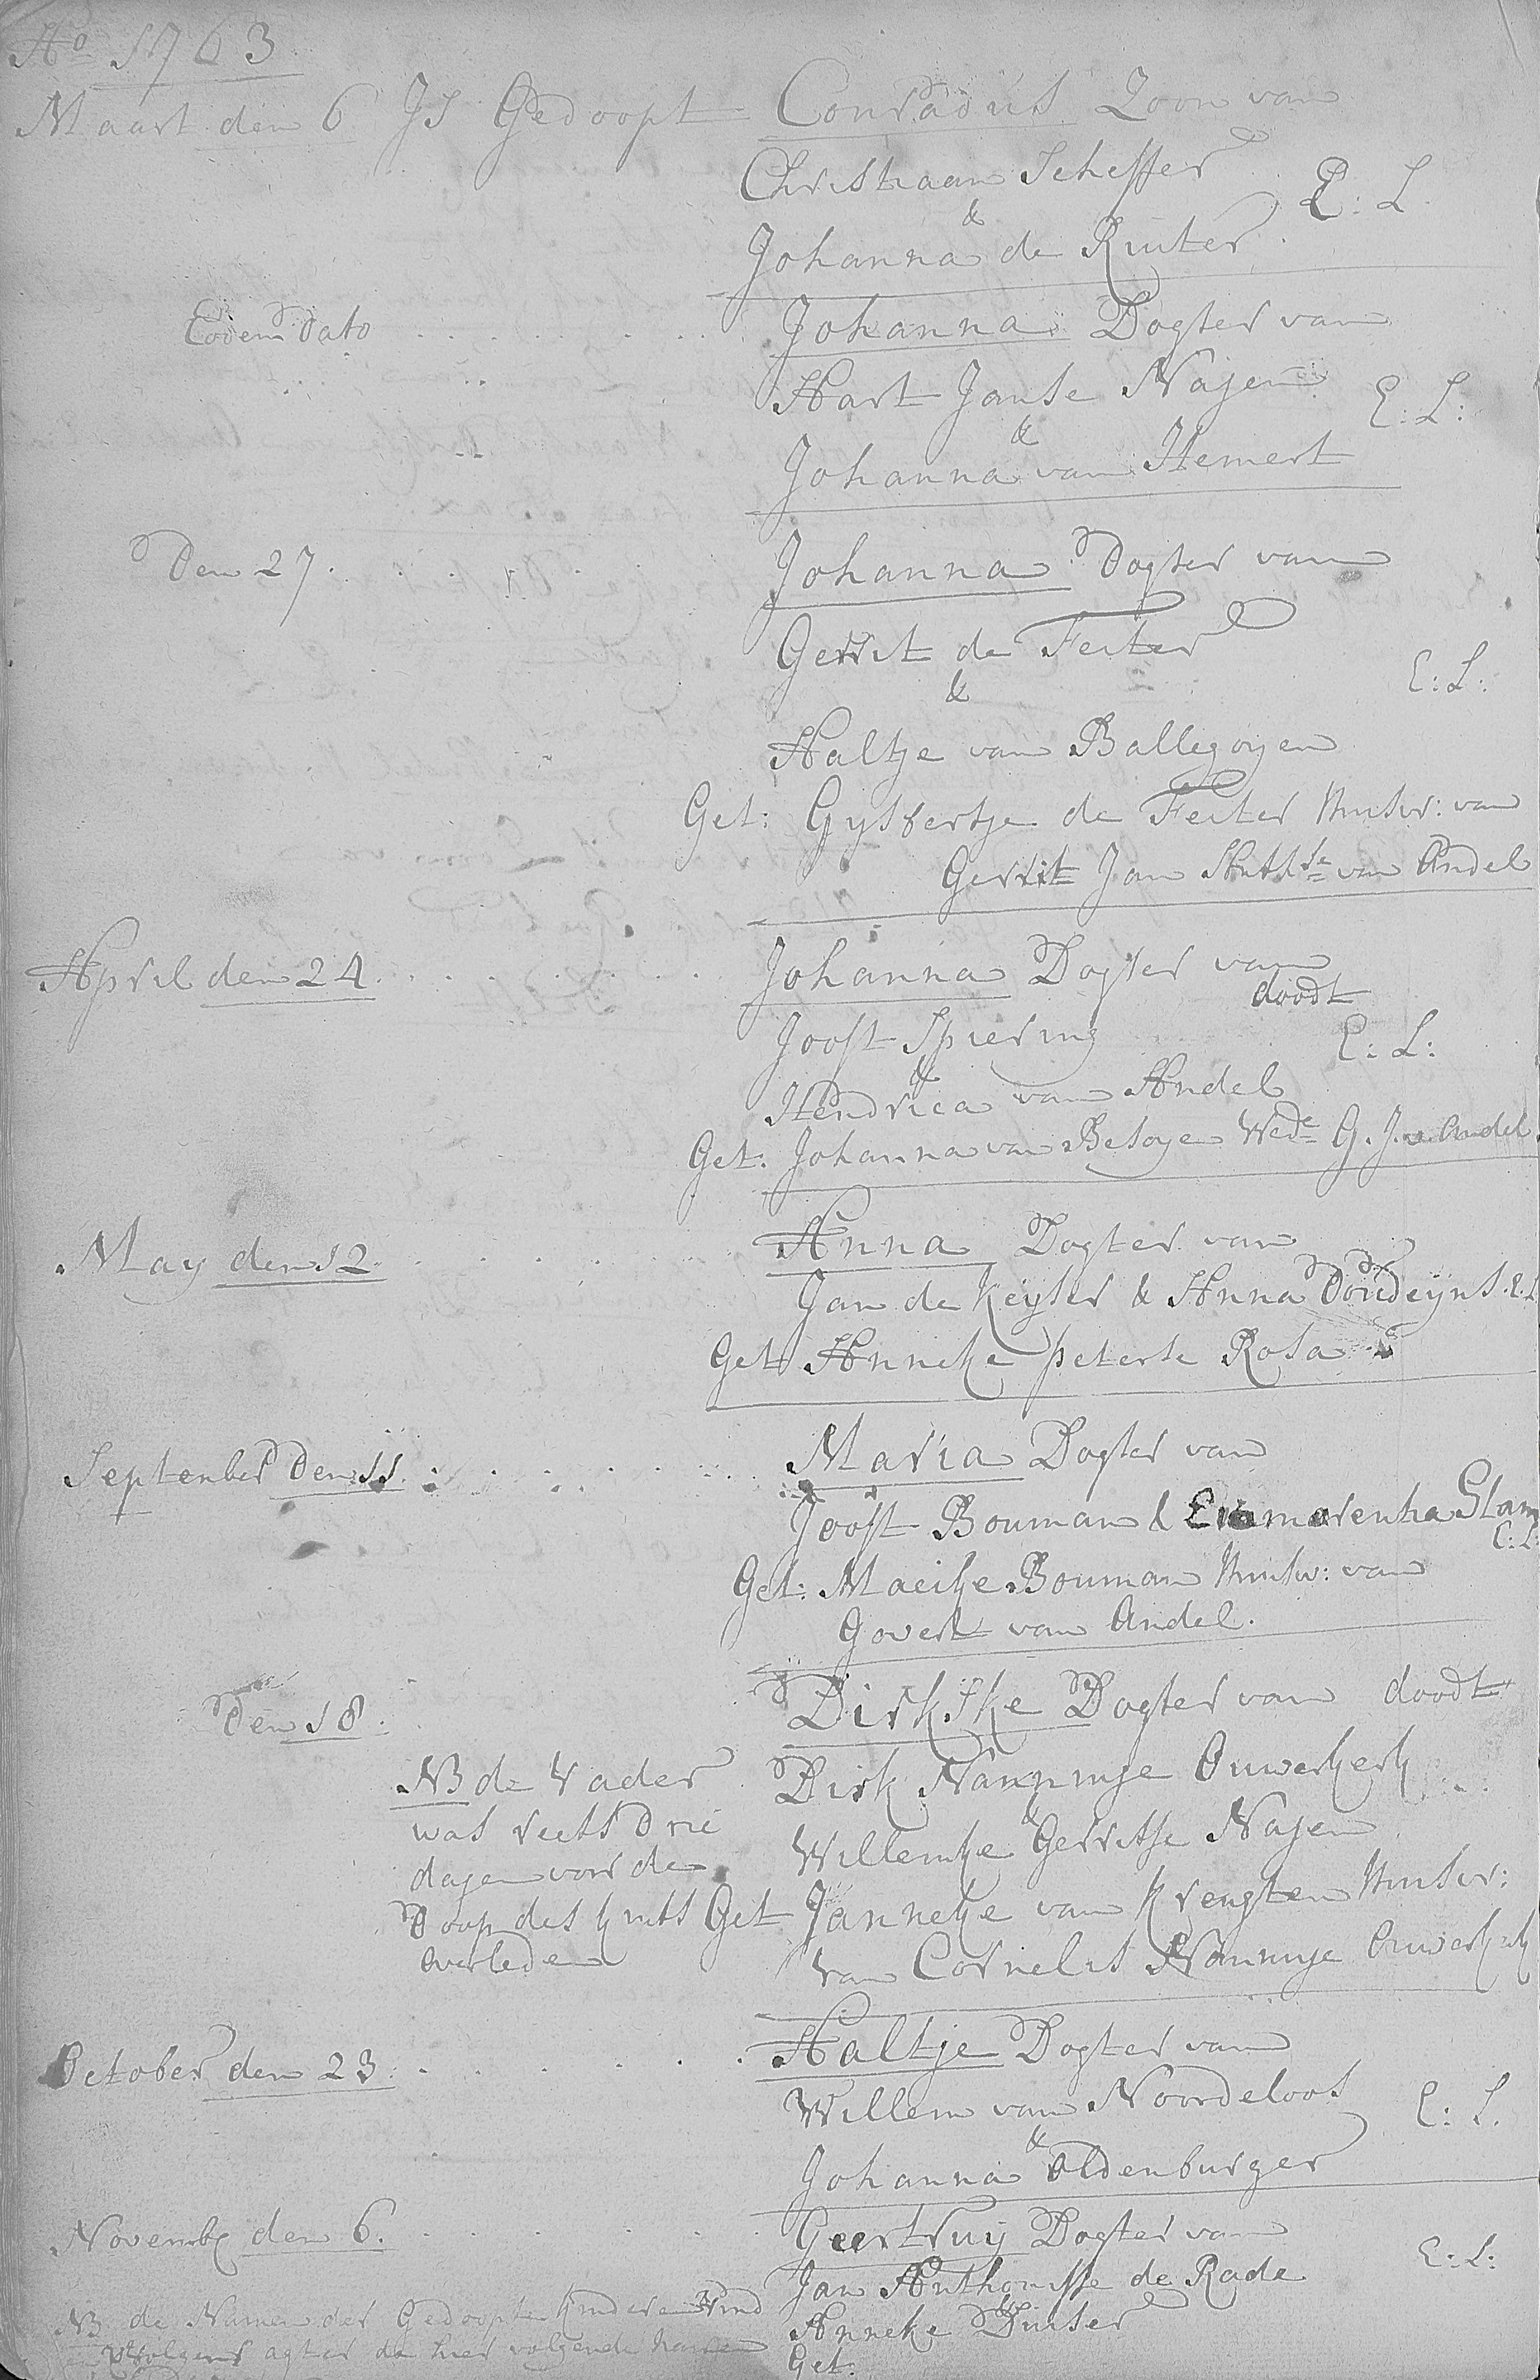 Ao 1763
Maart den 6 Is Gedoopt Conradus Zoon van
Christiaan Scheffer E: L.
&
Johanna de Ruiter
Eodem Dato Johanna Dogter van
Aart Janse Najen E: L:
&
Johanna van Hemert
Den 27. Johanna Dogter van
Gerrit de Feiter
& E: L:
Aaltje van Ballegoyen
Get: Gysbertje de Feiter Huisvr: van
Gerrit Jan van Andel
April den 24. Johanna Dogter van
doodt
Joost Spiering E: L:
&
Hendrica van Andel
Get. Johanna van Besoye Wede G. J. v. Andel
May den 12. Anna Dogter van
Jan de Keyser & Anna Boudeyns. E. L
Get Anneke peterse Rosa
September Den 11. Maria Dogter van
Joost Bouman & Slam
E: L:
Get: Maeike Bouman Huisv: van
Govert van Andel.
Den 18. Dirkske Dogter van doodt
NB de Vader Dirk Nannings Ouwerkerk
was reets Drie &
Willemke Gerritse Najen
dagen voor de
Doop des kints Get Janneke van Krengten Huisvr:
overleden van Cornelis Nanninge Ouwerkerk
October den 23. Aaltje Dogter van
Willem van Noordeloos E: L.
&
Johanna Oldenburger
Novemb den 6. Geertruij Dogter van
E: L:
Jan Anthonisse de Rade
&
NB de Namen der Gedoopte kinderen vind Anneke Duiser
vervolgens agter de hier volgende namen
Get: